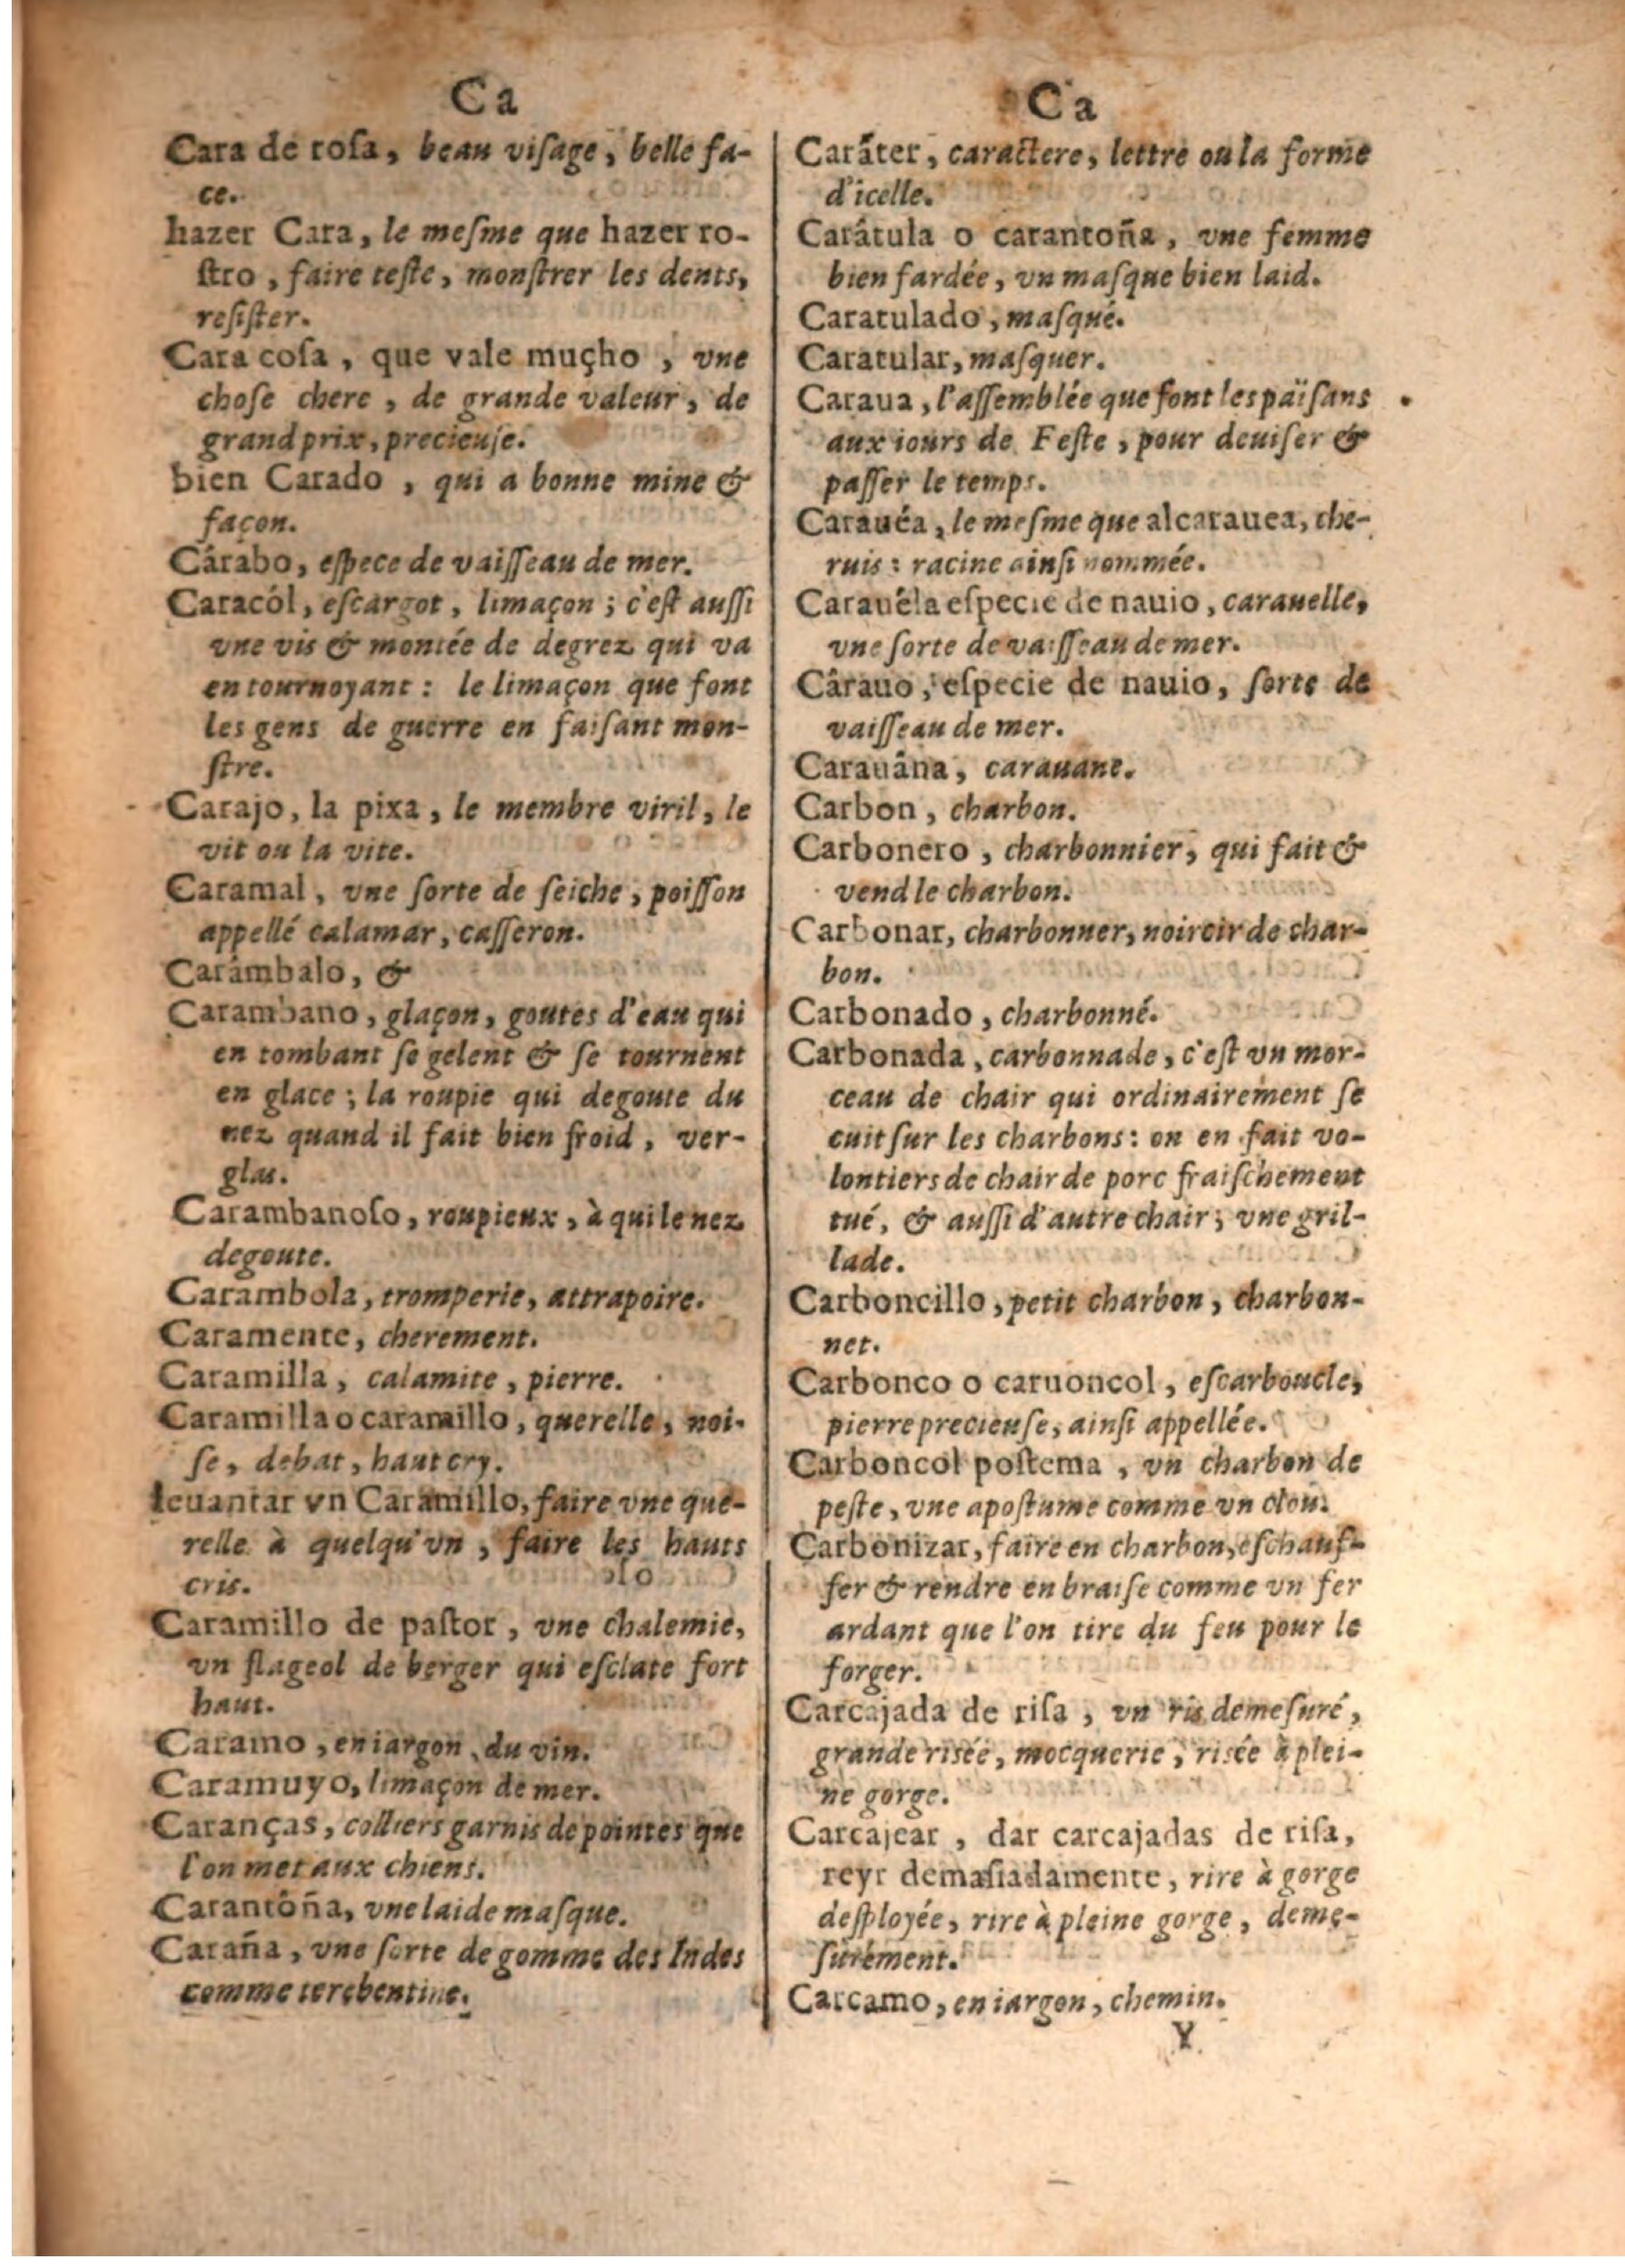 Ca
Cara de rosa, beau viſage, belle fa-
ce.
hazer Cara, le meſme que hazer ro-
ſtro, faire teſte, monſtrer les dents,
reſiſter.
Cara coſa, que vale muçho, vne
choſe chere, de grande valeur, de
grand prix, precieuſe.
bien Carado, qui a bonne mine &
façon.
Cârabo, eſpece de vaiſſeau de mer.
Caracól, eſcargot, limaçon; c'eſt auſſi
vne vis & montée de degrez qui va
en tournoyant: le limaçon que font
les gens de guerre en faiſant mon-
ſtre.
Carajo, la pixa, le membre viril, le
vit ou la vite.
Caramal, vne ſorte de ſeiche, poiſſon
appellé calamar, caſſeron.
Carâmbalo, &
Carambano, glaçon, goutes d'eau qui
en tombant ſe gelent & ſe tournent
en glace; la roupie qui degoute du
nez quand il fait bien froid, ver-
glas.
Carambanoſo, roupieux, à qui le nez
degoute.
Carambola, tromperie, attrapoire.
Caramente, cherement.
Caramilla, calamite, pierre.
Caramilla o caramillo, querelle, noi-
ſe, debat, haut cry.
leuantar vn Caramillo, faire vne que-
relle à quelqu'vn, faire les hauts
cris.
Caramillo de paſtor, vne chalemie,
vn flageol de berger qui eſclate fort
haut.
Caramo, en iargon, du vin.
Caramuyo, limaçon de mer.
Caranças, colliers garnis de pointes que
l'on met aux chiens.
Carantôña, vne laide maſque.
Caraña, vne ſorte de gomme des Indes
comme terebentine.
Ca
Carâter, caractere, lettre ou la forme
d'icelle.
Carâtula o carantoña, vne femme
bien fardée, vn maſque bien laid.
Caratulado, maſqué.
Caratular, maſquer.
Caraua, l'aſſemblée que font les païſans
aux iours de Feſte, pour deuiſer &
paſſer le temps.
Carauéa, le meſme que alcarauea, che-
ruis: racine ainſi nommée.
Carauéla eſpecie de nauio, carauelle,
vne ſorte de vaiſſeau de mer.
Cârauo, eſpecie de nauio, ſorte de
vaiſſeau de mer.
Carauâna, carauane.
Carbon, charbon.
Carbonero, charbonnier, qui fait &
vend le charbon.
Carbonar, charbonner, noircir de char-
bon.
Carbonado, charbonné.
Carbonada, carbonnade, c'eſt vn mor-
ceau de chair qui ordinairement ſe
cuit ſur les charbons: on en fait vo-
lontiers de chair de porc fraiſchement
tué, & auſſi d'autre chair; vne gril-
lade.
Carboncillo, petit charbon, charbon-
net.
Carbonco o caruoncol, eſcarboucle,
pierre precieuſe, ainſi appellée.
Carboncol poſtema, vn charbon de
peſte, vne apoſtume comme vn clou.
Carbonizar, faire en charbon, eſchauf-
fer & rendre en braiſe comme vn fer
ardant que l'on tire du feu pour le
forger.
Carcajada de riſa, vn ris demeſuré,
grande riſée, mocquerie, riſée à plei-
ne gorge.
Carcajear, dar carcajadas de riſa,
reyr demaſiadamente, rire à gorge
deſployée, rire à pleine gorge, deme-
ſurément.
Carcamo, en iargon, chemin.
Y